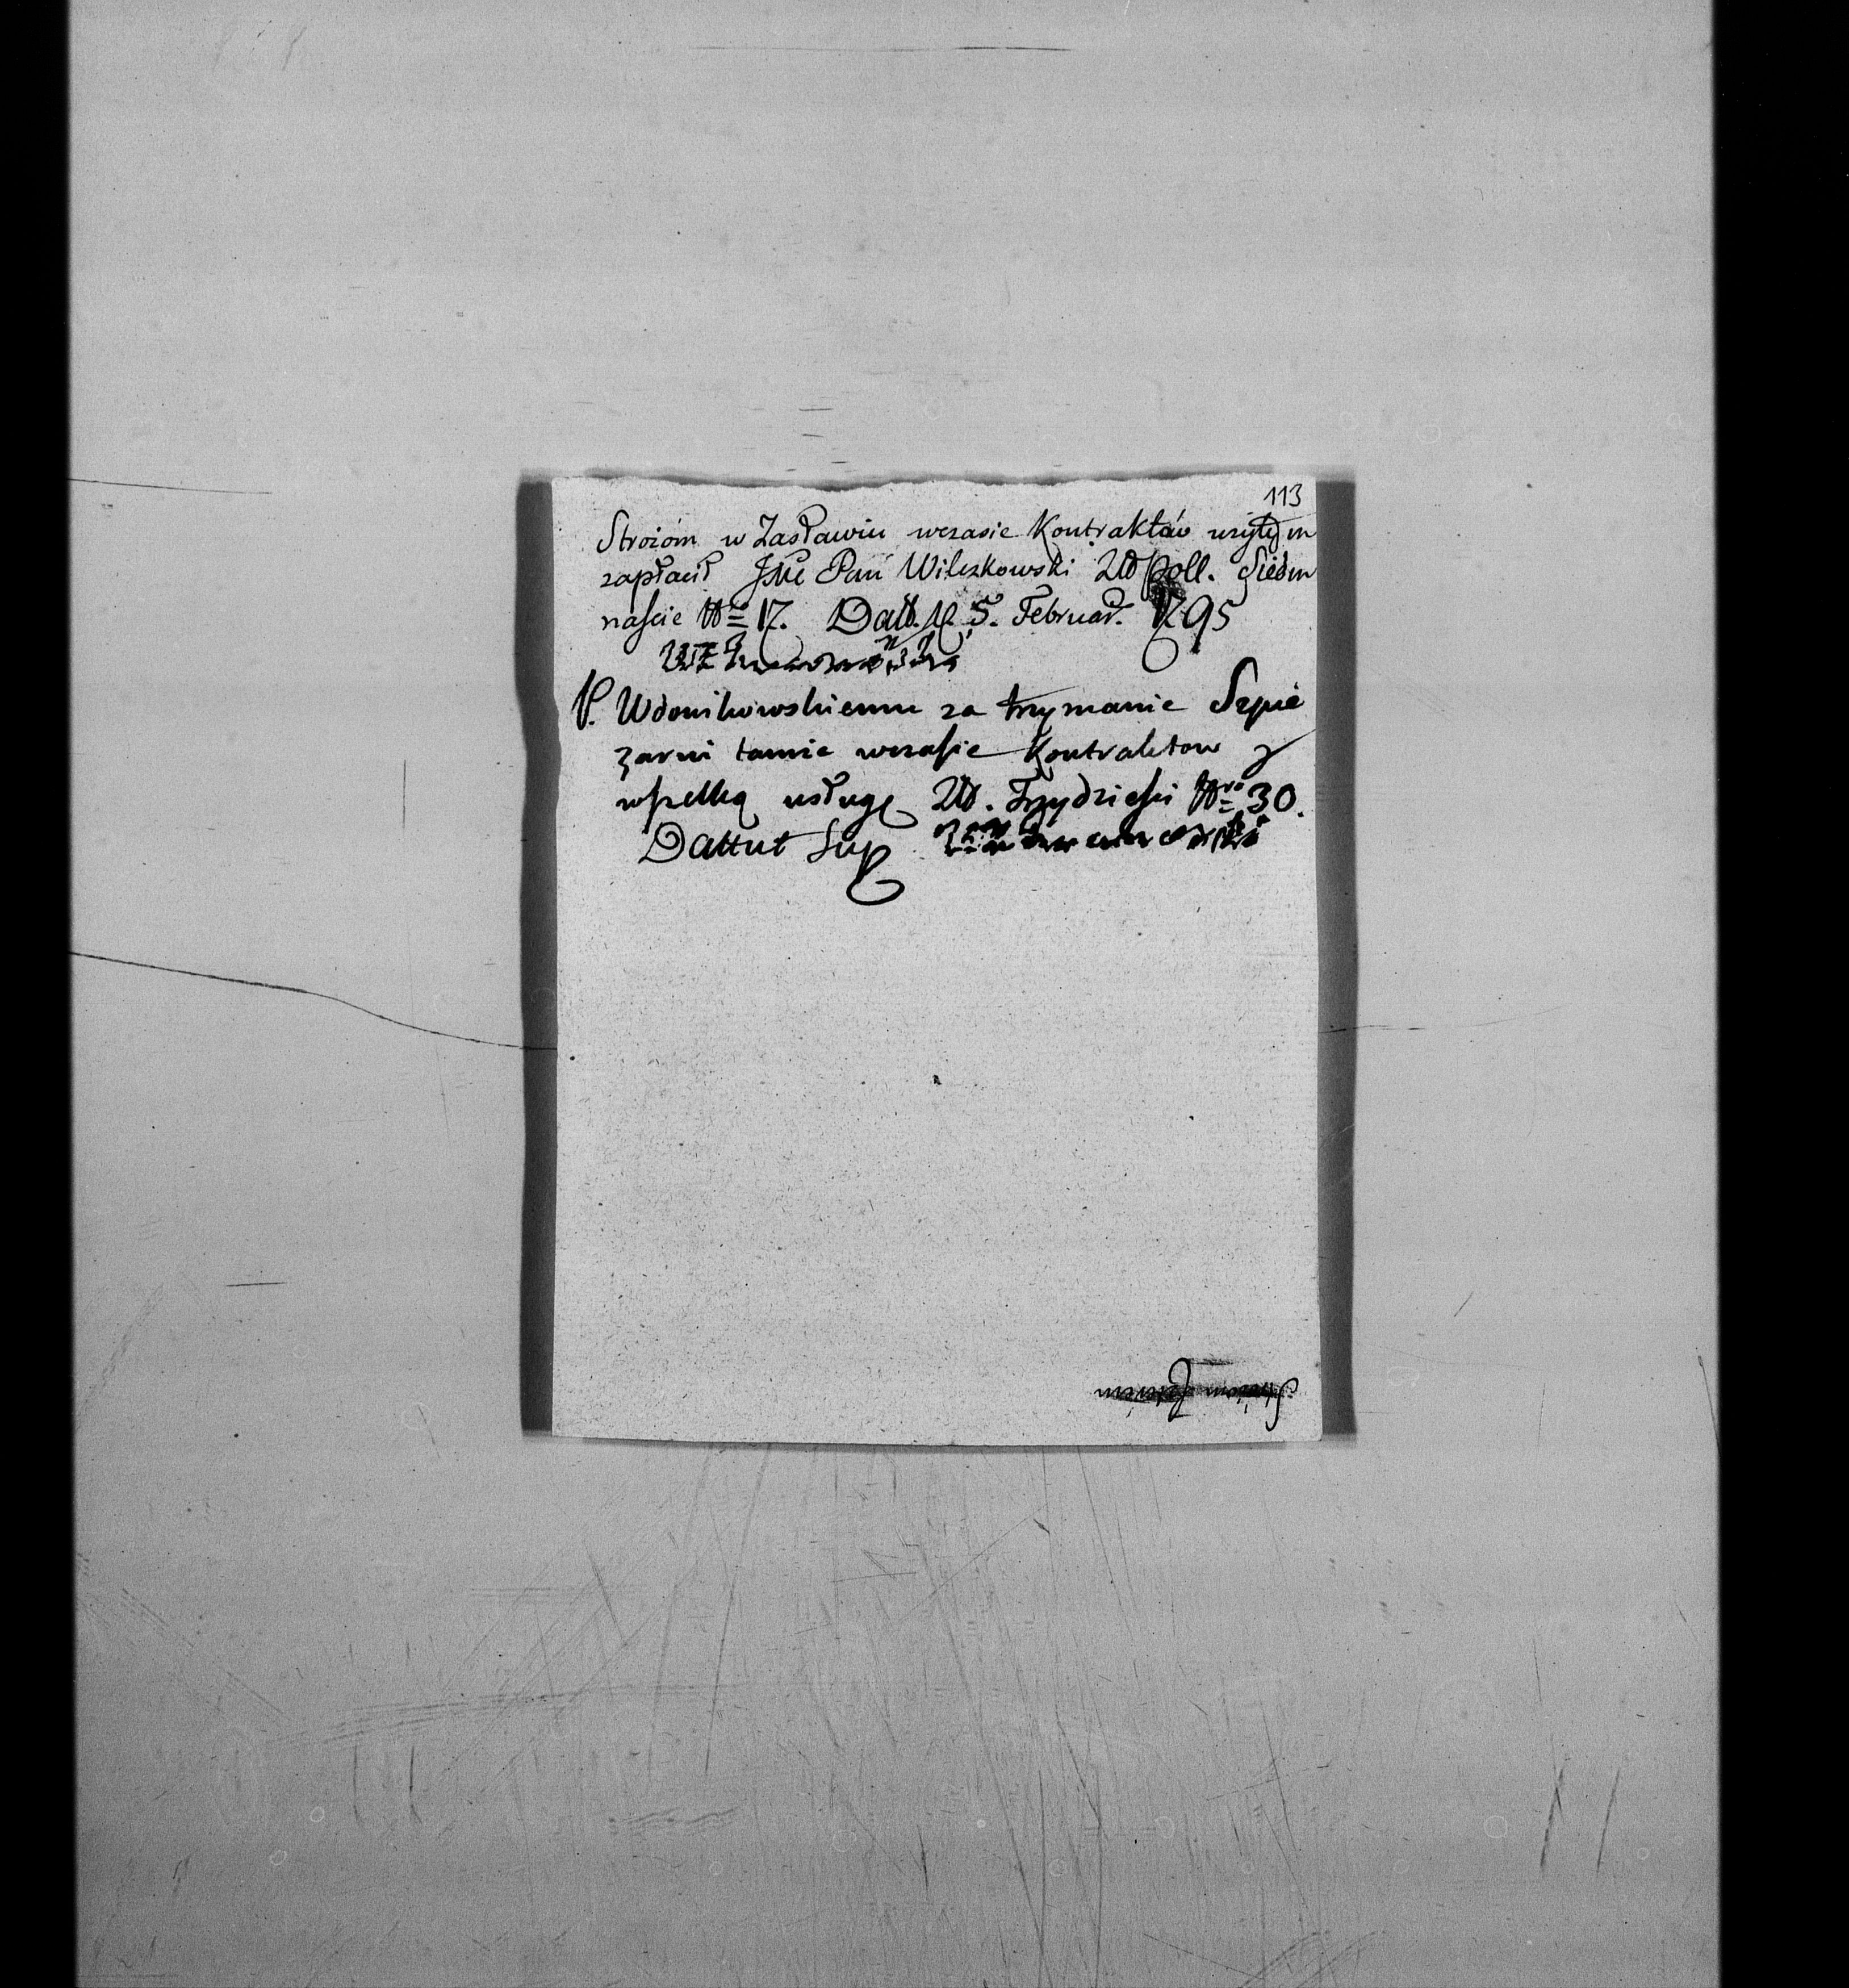 113
Strożóm w Zasławiu wczasie Kontraktów użytym
zapłacił JMć Pan Wilczkowski Zł poll. Siedm
naście Nro 17. Datt. d. 5. Februar. 1795
P. Wdowikowskiemu za trzymanie Szpi
żarni tamże wczasie Kontraktow y
wszelką usługę Zł. Trzydzieści Nro 30.
Dattut Sup
Strożom